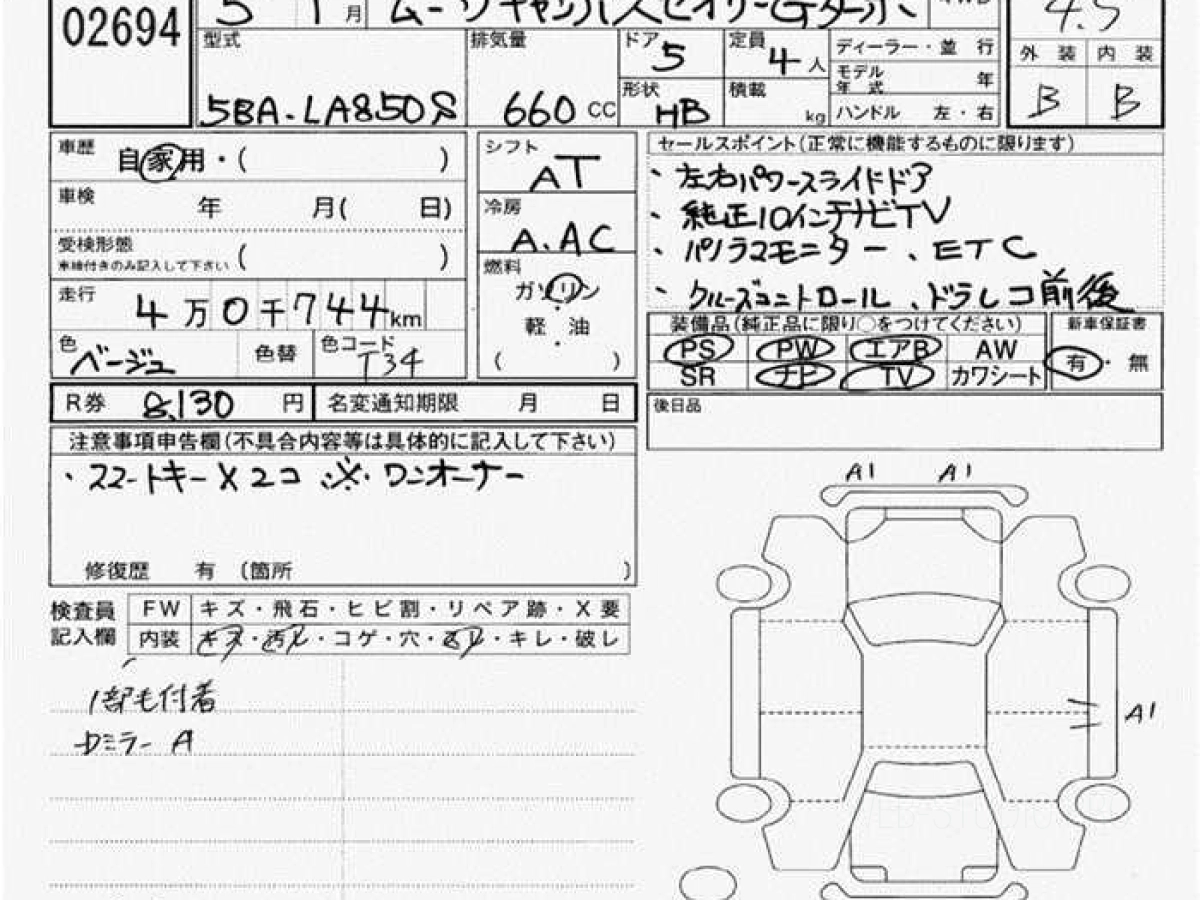 02694
5 1月 ムーヴキャンバスセオリーGターボ
4.5
型式 5BA-LA850S
排気量 660 CC
ドア 5
定員 4人
形状 HB
積載 kg
ディーラー・並行
モデル年式 年
ハンドル 左・右
外装 内装
B B
車歴 自家用・( )
車検 年 月( 日)
受検形態
車検付きのみ記入して下さい ( )
走行 4万0千744km
色 ベージュ 色替 色コード T34
シフト AT
冷房 A.AC
燃料 ガソリン
軽・油
・
( )
セールスポイント(正常に機能するものに限ります)
・左右パワースライドドア
・純正10インチナビTV
・パノラマモニター、ETC
・クルーズコントロール、ドラレコ前後
装備品(純正品に限り○をつけてください)
PS PW エアB AW
SR ナビ TV カワシート
新車保証書
有・無
R券 8,130 円 名変通知期限 月 日
後日品
注意事項申告欄(不具合内容等は具体的に記入して下さい)
・スマートキー×2コ ※ワンオーナー
修復歴 有 (箇所 )
検査員
記入欄
FW キズ・飛石・ヒビ割・リペア跡・X要
内装 キズ・汚レ・コゲ・穴・スレ・キレ・破レ
1部毛付着
ミラー A
A1 A1
A1